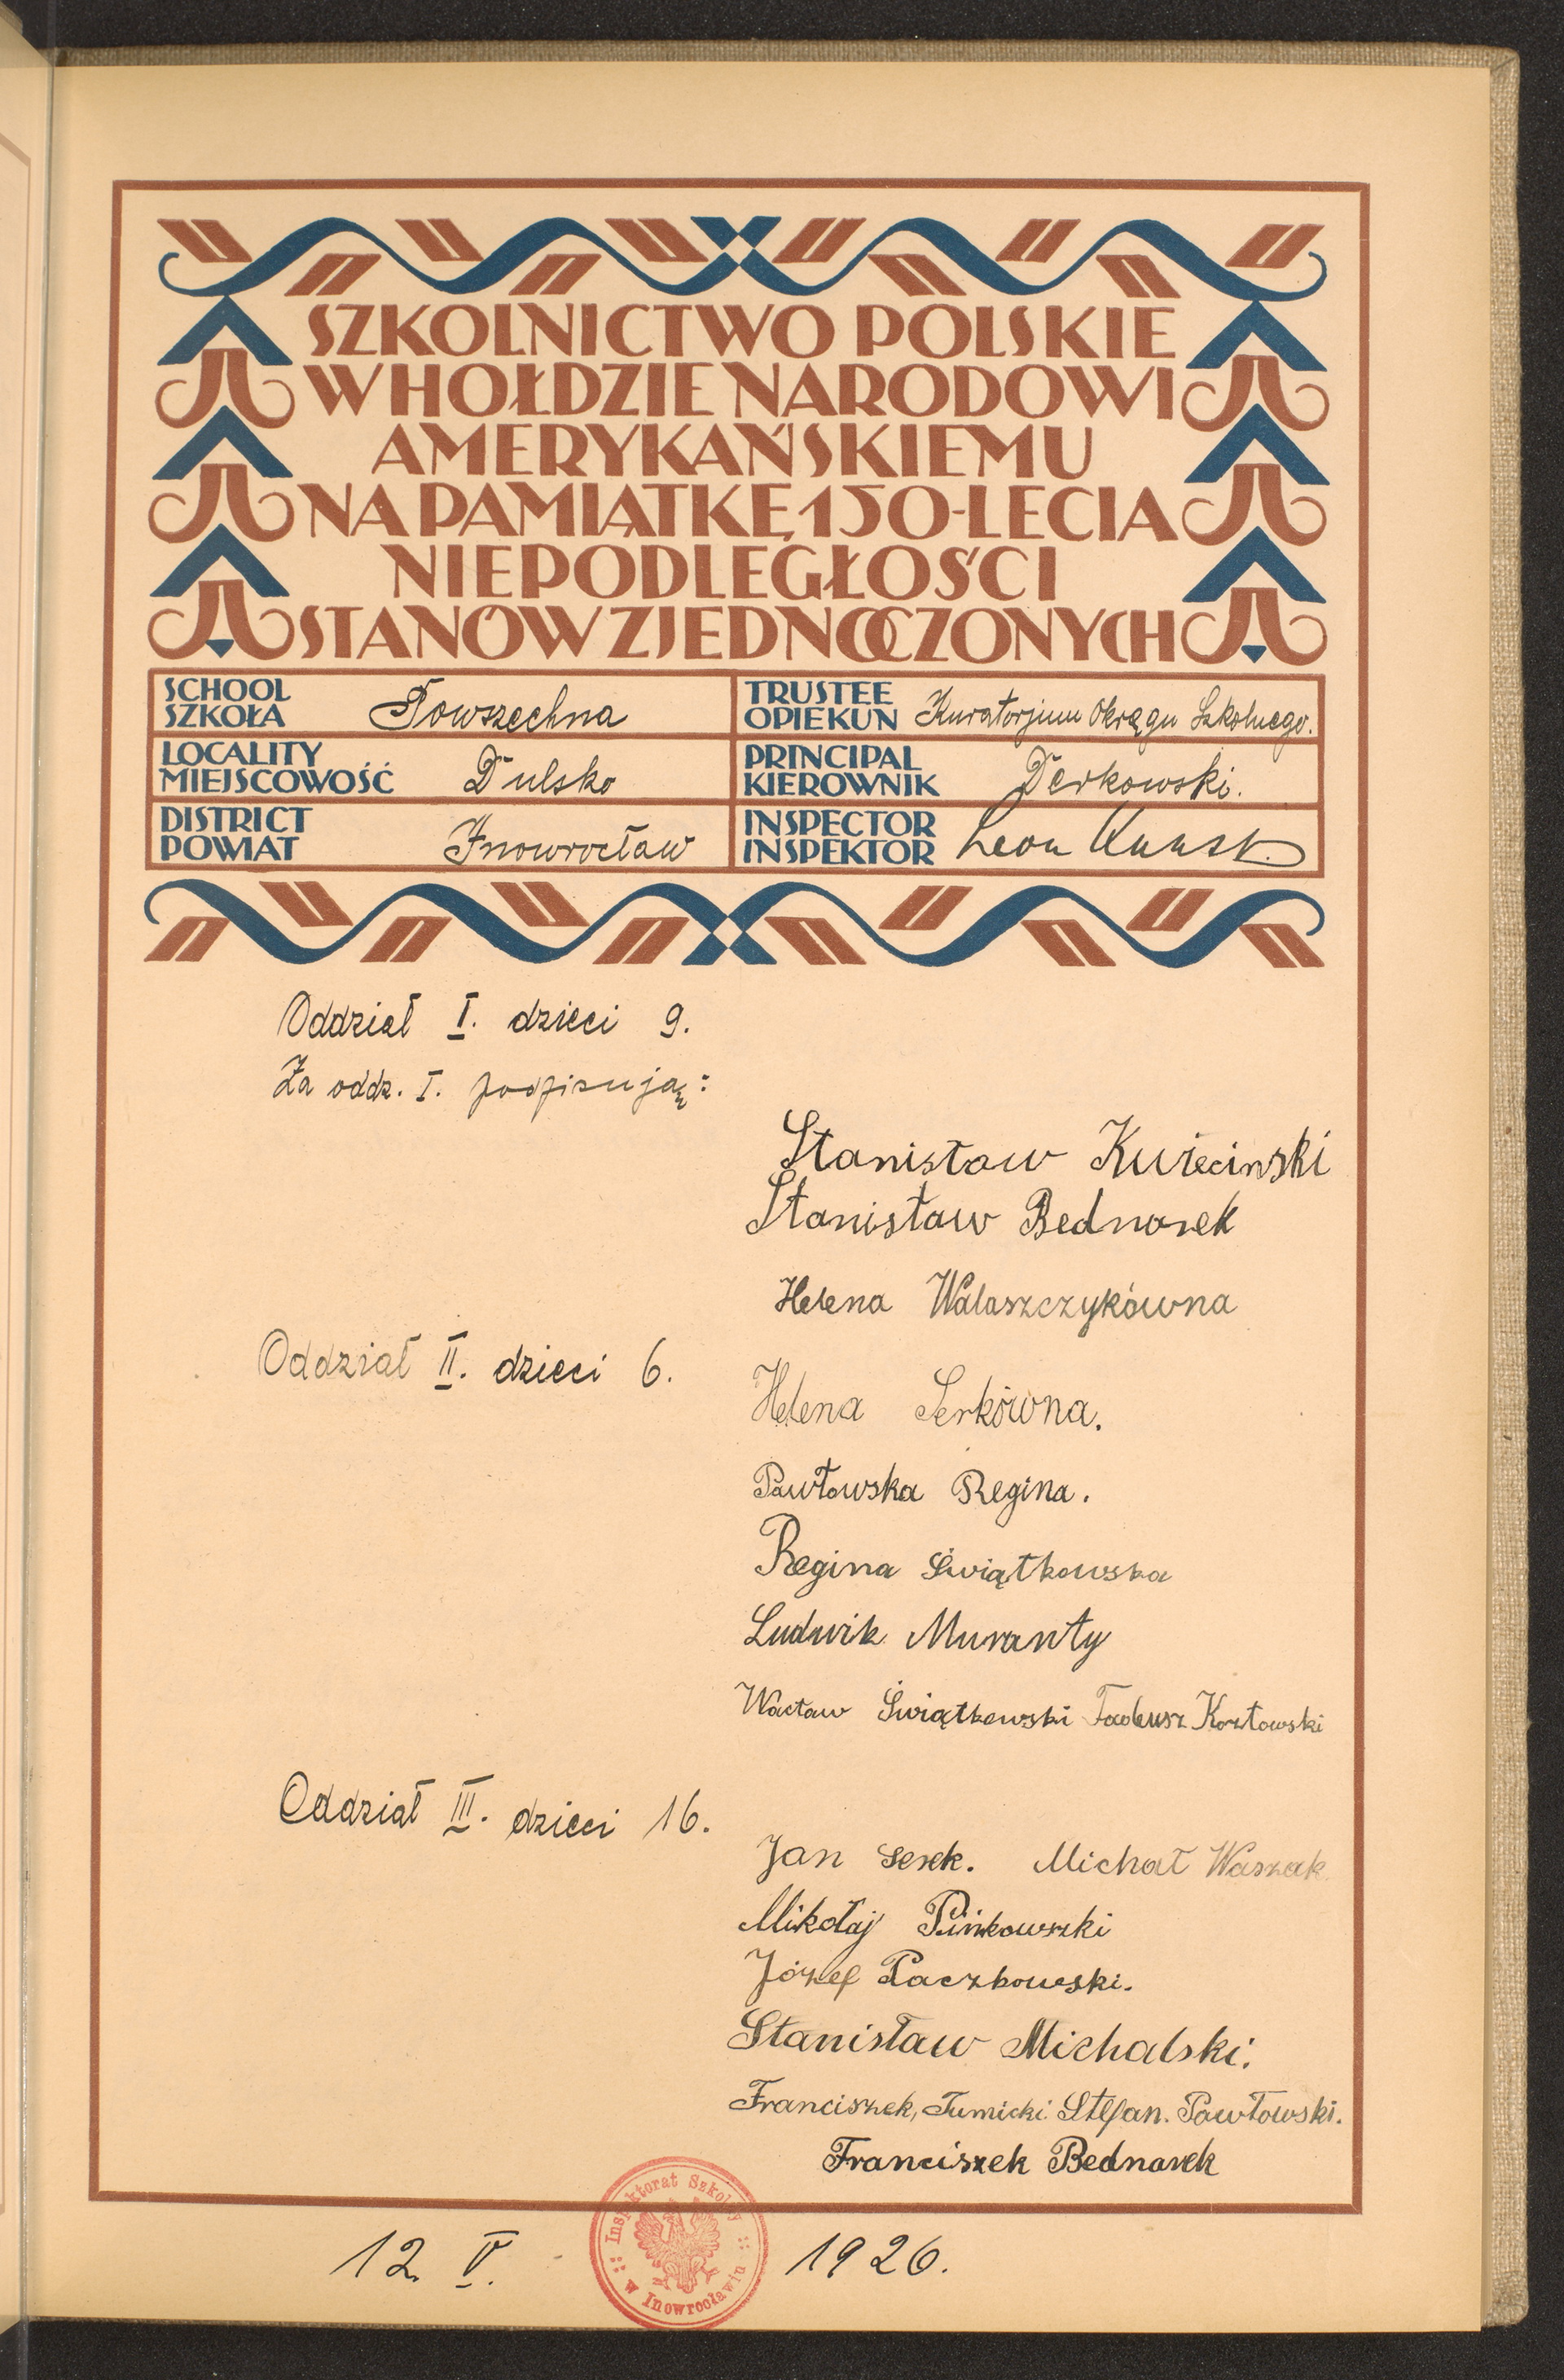 SZKOLNICTWO POLSKIE
W HOŁDZIE NARODOWI
AMERYKAŃSKIEMU
NA PAMIĄTKĘ 150-LECIA
NIEPODLEGŁOŚCI
STANÓW ZJEDNOCZONYCH
SCHOOL
SZKOŁA Powszechna
TRUSTEE
OPIEKUN Kuratorjum Okręgu Szkolnego.
LOCALITY
MIEJSCOWOŚĆ Dulsko
PRINCIPAL
KIEROWNIK Derkowski.
DISTRICT
POWIAT Inowrocław
INSPECTOR
INSPEKTOR Leon
Oddział I. dzieci 9.
Za oddz. I. podpisują:
Stanisław Kwiecinski
Stanisław Bednarek
Helena Walaszczykówna
Oddział II. dzieci 6.
Helena Serkówna.
Pawłowska Regina.
Regina Świątkowska
Ludwik Muranty
Wacław Świątkowski Tadeusz Kozłowski
Oddział III. dzieci 16.
Jan Serek. Michał Waszak
Mikołaj Pińkowski
Józef Paczkowski.
Stanisław Michalski.
Franciszek, Tumicki. Stefan. Pawłowski.
Franciszek Bednarek
Inspektorat Szkolny
w Inowrocławiu
12. V. 1926.